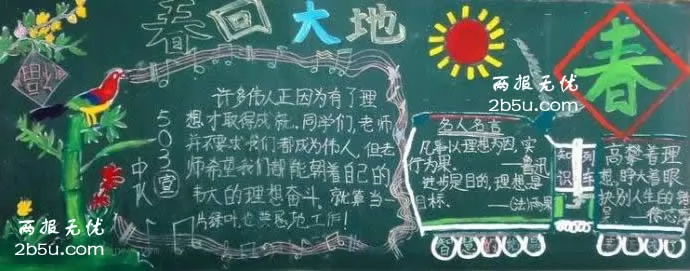 春回大地
福
春
两报无忧
2b5u.com
503宣
中队
许多伟人正因为有了理
想才取得成就。同学们,老师
并不要求我们都成为伟人,但老
师希望我们都能朝着自己的
伟大的理想奋斗。就算当一
片绿叶,也共思他工作!
名人名言
凡事以理想为因,实
行为果。——鲁迅
进步定目的,理想是
目标。——(法)雨果
知识
列车
高攀着理
想,睁大着眼
诀别人生的错
——徐志
两报无忧
2b5u.com